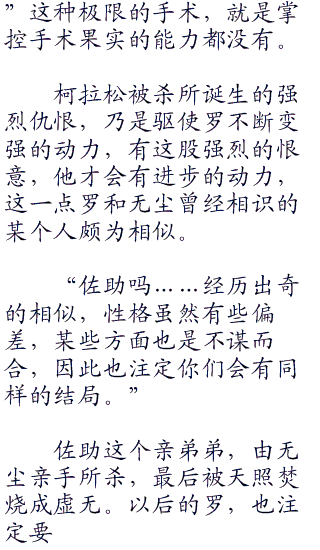 ”这种极限的手术，就是掌
控手术果实的能力都没有。
柯拉松被杀所诞生的强
烈仇恨，乃是驱使罗不断变
强的动力，有这股强烈的恨
意，他才会有进步的动力，
这一点罗和无尘曾经相识的
某个人颇为相似。
“佐助吗……经历出奇
的相似，性格虽然有些偏
差，某些方面也是不谋而
合，因此也注定你们会有同
样的结局。”
佐助这个亲弟弟，由无
尘亲手所杀，最后被天照焚
烧成虚无。以后的罗，也注
定要